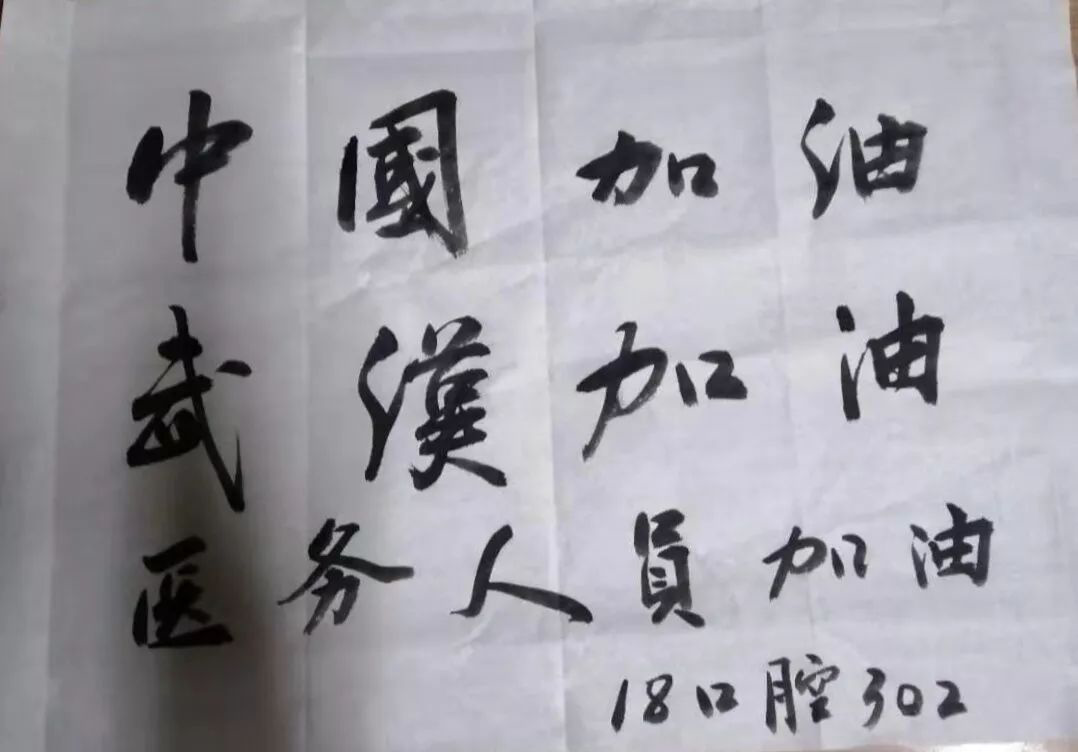 中國加油
武漢加油
医务人員加油
18口腔302